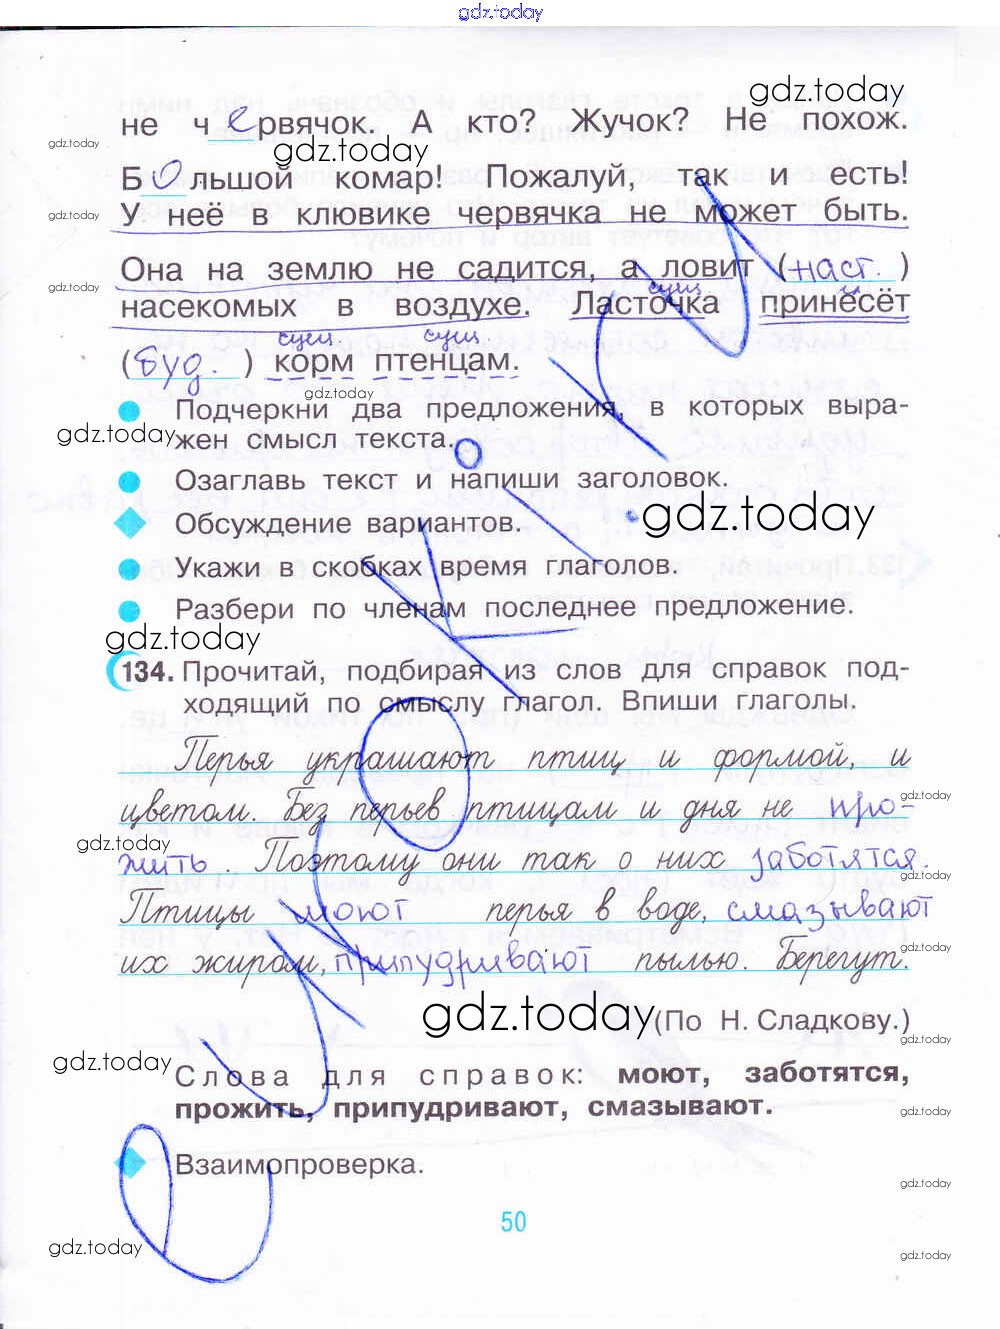 gdz.today
gdz.today
не червячок. А кто? Жучок? Не похож.
gdz.today
gdz.today
Большой комар! Пожалуй, так и есть!
У неё в клювике червячка не может быть.
gdz.today
Она на землю не садится, а ловит (наст.)
gdz.today
сущ.
насекомых в воздухе. Ласточка принесёт
сущ. сущ.
(буд.) корм птенцам.
gdz.today
Подчеркни два предложения, в которых выра-
gdz.today
жен смысл текста.
Озаглавь текст и напиши заголовок.
gdz.today
Обсуждение вариантов.
Укажи в скобках время глаголов.
Разбери по членам последнее предложение.
gdz.today
134. Прочитай, подбирая из слов для справок под-
ходящий по смыслу глагол. Впиши глаголы.
Перья украшают птиц и формой, и
gdz.today
цветом. Без перьев птицам и дня не про-
gdz.today
жить. Поэтому они так о них заботятся.
gdz.today
Птицы моют перья в воде, смазывают
gdz.today
их жиром, припудривают пылью. Берегут.
gdz.today
(По Н. Сладкову.)
gdz.today
gdz.today
Слова для справок: моют, заботятся,
прожить, припудривают, смазывают.
gdz.today
Взаимопроверка.
gdz.today
50
gdz.today
gdz.today